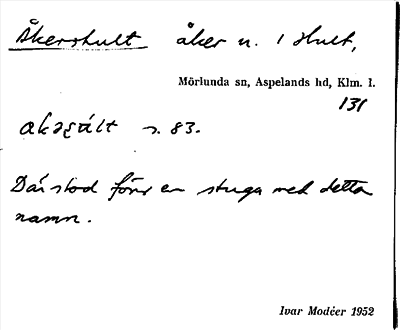 Åkershult åker n. 1 Hult,
Mörlunda sn, Aspelands hd, Klm. l.
131
s. 83.
Där stod förr en stuga med detta
namn.
Ivar Modéer 1952